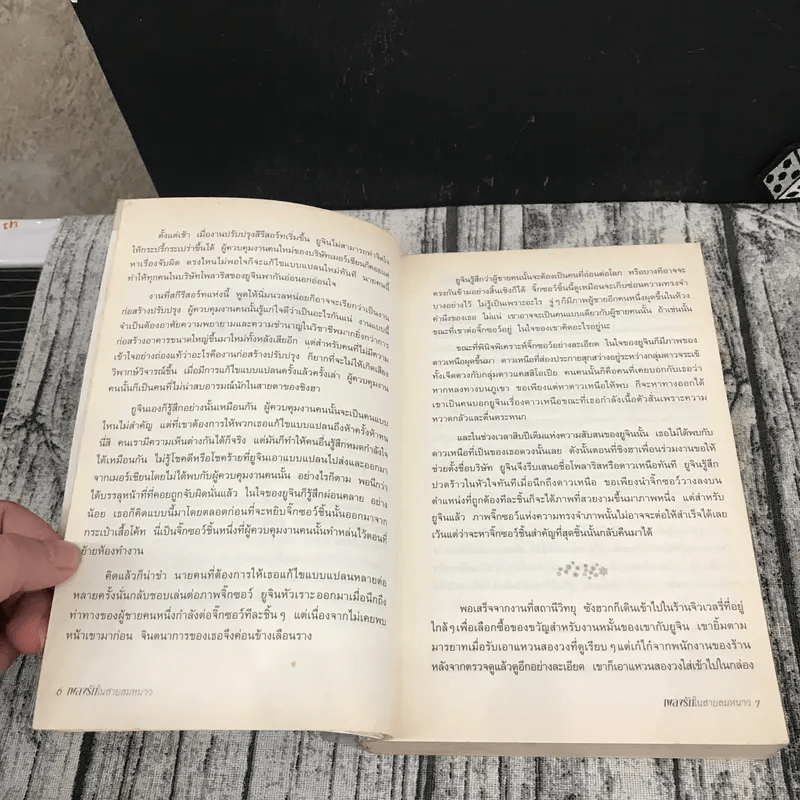 ตั้งแต่เช้า เมื่องานปรับปรุงสกีรีสอร์ทเริ่มขึ้น ยูจินไม่สามารถทำจิตใจ
ให้กระปรี้กระเปร่าขึ้นได้ ผู้ควบคุมงานคนใหม่ของบริษัทเมอร์เชียนก็คอยแต่
หาเรื่องจับผิด ตรงไหนไม่พอใจก็จะแก้ไขแบบแปลนใหม่ทันที นายคนนี้
ทำให้ทุกคนในบริษัทโพลาริสของยูจินพากันอ่อนอกอ่อนใจ
งานที่สกีรีสอร์ทแห่งนี้ พูดให้นิ่มนวลหน่อยก็อาจจะเรียกว่าเป็นงาน
ก่อสร้างปรับปรุง ผู้ควบคุมงานคนนั้นรู้แก่ใจดีว่าอะไรเป็นอะไรกันแน่ งานแบบนี้
จำเป็นต้องอาศัยความพยายามและความชำนาญในวิชาชีพมากยิ่งกว่าการ
ก่อสร้างอาคารขนาดใหญ่ขึ้นมาใหม่ทั้งหลังเสียอีก แต่สำหรับคนที่ไม่มีความ
เข้าใจอย่างถ่องแท้ว่าอะไรคืองานก่อสร้างปรับปรุง ก็ยากที่จะไม่ให้เกิดเสียง
วิพากษ์วิจารณ์ขึ้น เมื่อมีการแก้ไขแบบแปลนครั้งแล้วครั้งเล่า ผู้ควบคุมงาน
คนนั้นก็เป็นคนที่ไม่น่าสบอารมณ์นักในสายตาของชิงฮา
ยูจินเองก็รู้สึกอย่างนั้นเหมือนกัน ผู้ควบคุมงานคนนั้นจะเป็นคนแบบ
ไหนไม่สำคัญ แต่ที่เขาต้องการให้พวกเธอแก้ไขแบบแปลนถึงห้าครั้งห้าหน
นี่สิ คนเรามีความเห็นต่างกันได้ก็จริง แต่มันก็ทำให้คนอื่นรู้สึกหมดกำลังใจ
ได้เหมือนกัน ไม่รู้โชคดีหรือโชคร้ายที่ยูจินเอาแบบแปลนไปส่งและออกมา
จากเมอร์เชียนโดยไม่ได้พบกับผู้ควบคุมงานคนนั้น อย่างไรก็ตาม พอนึกว่า
ได้บรรลุหน้าที่ที่คอยถูกจับผิดนั่นแล้ว ในใจของยูจินก็รู้สึกผ่อนคลาย อย่าง
น้อย เธอก็คิดแบบนี้มาโดยตลอดก่อนที่จะหยิบจิ๊กซอว์ชิ้นนั้นออกมาจาก
กระเป๋าเสื้อโค้ท นี่เป็นจิ๊กซอว์ชิ้นหนึ่งที่ผู้ควบคุมงานคนนั้นทำหล่นไว้ตอนที่
ย้ายห้องทำงาน
คิดแล้วก็น่าขำ นายคนที่ต้องการให้เธอแก้ไขแบบแปลนหลายต่อ
หลายครั้งนั่นกลับชอบเล่นต่อภาพจิ๊กซอว์ ยูจินหัวเราะออกมาเมื่อนึกถึง
ท่าทางของผู้ชายคนหนึ่งกำลังต่อจิ๊กซอว์ทีละชิ้นๆ แต่เนื่องจากไม่เคยพบ
หน้าเขามาก่อน จินตนาการของเธอจึงค่อนข้างเลือนราง
6 เพลงรักในสายลมหนาว
ยูจินรู้สึกว่าผู้ชายคนนั้นจะต้องเป็นคนที่อ่อนต่อโลก หรือบางทีอาจจะ
ตรงกันข้ามอย่างสิ้นเชิงก็ได้ จิ๊กซอว์ชิ้นนี้ดูเหมือนจะเก็บซ่อนความทรงจำ
บางอย่างไว้ ไม่รู้เป็นเพราะอะไร จู่ๆ ก็มีภาพผู้ชายอีกคนหนึ่งผุดขึ้นในห้วง
คำนึงของเธอ ไม่แน่ เขาอาจจะเป็นคนแบบเดียวกับผู้ชายคนนั้น ถ้าเช่นนั้น
ขณะที่เขาต่อจิ๊กซอว์อยู่ ในใจของเขาคิดอะไรอยู่นะ
ขณะที่พินิจพิเคราะห์จิ๊กซอว์อย่างละเอียด ในใจของยูจินก็มีภาพของ
ดาวเหนือผุดขึ้นมา ดาวเหนือที่ส่องประกายสุกสว่างอยู่ระหว่างกลุ่มดาวจระเข้
ทั้งเจ็ดดวงกับกลุ่มดาวแคสสิโอเปีย คนคนนั้นก็คือคนที่เคยบอกกับเธอว่า
หากหลงทางบนภูเขา ขอเพียงแต่หาดาวเหนือให้พบ ก็จะหาทางออกได้
เขาเป็นคนบอกยูจินเรื่องดาวเหนือขณะที่เธอกำลังเนื้อตัวสั่นเพราะความ
หวาดกลัวและตื่นตระหนก
และในช่วงเวลาสิบปีเต็มแห่งความสับสนของยูจินนั้น เธอไม่ได้พบกับ
ดาวเหนือที่เป็นของเธอดวงนั้นเลย ดังนั้นตอนที่ชิงฮาเพื่อนร่วมงานขอให้
ช่วยตั้งชื่อบริษัท ยูจินจึงรีบเสนอชื่อโพลาริสหรือดาวเหนือทันที ยูจินรู้สึก
ปวดร้าวในหัวใจทันทีเมื่อนึกถึงดาวเหนือ ขอเพียงนำจิ๊กซอว์วางลงบน
ตำแหน่งที่ถูกต้องทีละชิ้นก็จะได้ภาพที่สวยงามขึ้นมาภาพหนึ่ง แต่สำหรับ
ยูจินแล้ว ภาพจิ๊กซอว์แห่งความทรงจำภาพนั้นไม่อาจจะต่อให้สำเร็จได้เลย
เว้นแต่ว่าจะหาจิ๊กซอว์ชิ้นสำคัญที่สุดชิ้นนั้นกลับคืนมาได้
พอเสร็จจากงานที่สถานีวิทยุ ซังฮวกก็เดินเข้าไปในร้านจิวเวลรี่ที่อยู่
ใกล้ๆ เพื่อเลือกซื้อของขวัญสำหรับงานหมั้นของเขากับยูจิน เขายิ้มตาม
มารยาทเมื่อรับเอาแหวนสองวงที่ดูเรียบๆ แต่เก๋ไก๋จากพนักงานของร้าน
หลังจากตรวจดูแล้วดูอีกอย่างละเอียด เขาก็เอาแหวนสองวงใส่เข้าไปในกล่อง
เพลงรักในสายลมหนาว 7